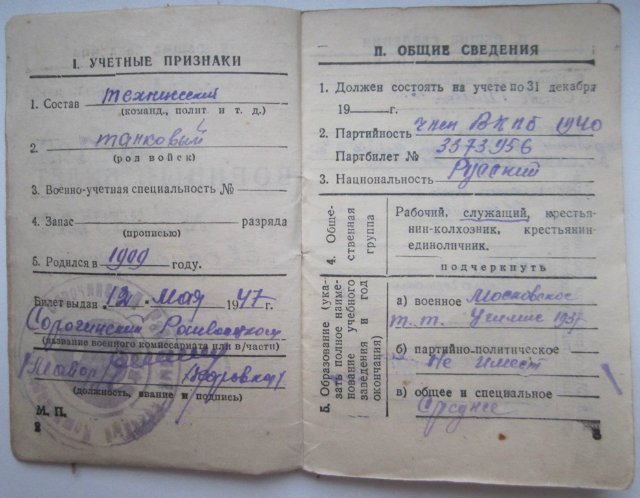 I. УЧЕТНЫЕ ПРИЗНАКИ
1. Состав технический
(команд., полит. и т. д.)
2. танковый
(род войск)
3. Военно-учетная специальность №
4. Запас разряда
(прописью)
5. Родился в 1909 году.
Билет выдан „12“ мая 1947 г.
Сорочинский Райвоенком
(название военного комиссариата или в/части)
(должность, звание и подпись)
М. П.
2
II. ОБЩИЕ СВЕДЕНИЯ
1. Должен состоять на учете по 31 декабря
19 г.
2. Партийность член ВКПб 1940
Партбилет № 3373956
3. Национальность Русский
4. Общественная группа
Рабочий, служащий, крестья-
нин-колхозник, крестьянин-
единоличник.
подчеркнуть
5. Образование (ука-
зать полное наиме-
нование учебного
заведения и год
окончания)
а) военное Московское
т. т. Училище 1937
б) партийно-политическое
Не имеет
в) общее и специальное
Среднее
3